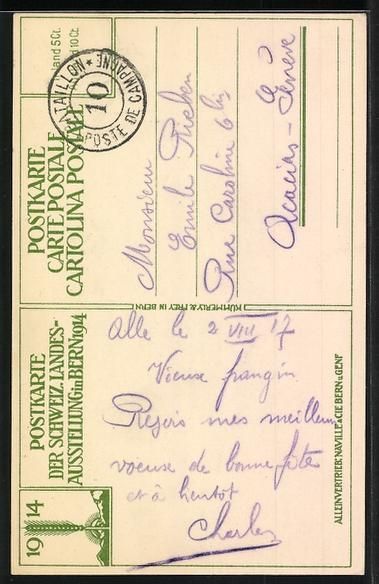 POSTKARTE
CARTE POSTALE
CARTOLINA POSTALE
BATAILLON
10
POSTE DE CAMPAGNE
Monsieur
Emile
Rue Caroline 6 bis
Acacias - Genève
KÜMMERLY & FREY IN BERN
POSTKARTE
DER SCHWEIZ. LANDES-
AUSSTELLUNG in BERN 1914
1914
Alle le 2 VIII 17
Vieux frangin
Reçois mes meilleurs
voeuse de bonne fête
et à bientôt
Charles
ALLEINVERTRIEB: NAVILLE & CIE BERN u. GENF